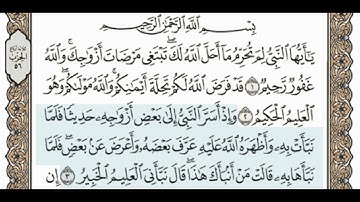 بِسْمِ اللَّهِ الرَّحْمَٰنِ الرَّحِيمِ
يَا أَيُّهَا النَّبِيُّ لِمَ تُحَرِّمُ مَا أَحَلَّ اللَّهُ لَكَ تَبْتَغِي مَرْضَاتَ أَزْوَاجِكَ وَاللَّهُ
غَفُورٌ رَّحِيمٌ ١ قَدْ فَرَضَ اللَّهُ لَكُمْ تَحِلَّةَ أَيْمَانِكُمْ وَاللَّهُ مَوْلَاكُمْ وَهُوَ
الْعَلِيمُ الْحَكِيمُ ٢ وَإِذْ أَسَرَّ النَّبِيُّ إِلَىٰ بَعْضِ أَزْوَاجِهِ حَدِيثًا فَلَمَّا
نَبَّأَتْ بِهِ وَأَظْهَرَهُ اللَّهُ عَلَيْهِ عَرَّفَ بَعْضَهُ وَأَعْرَضَ عَن بَعْضٍ فَلَمَّا
نَبَّأَهَا بِهِ قَالَتْ مَنْ أَنبَأَكَ هَٰذَا قَالَ نَبَّأَنِيَ الْعَلِيمُ الْخَبِيرُ ٣ إِن
الحزب
٥٦